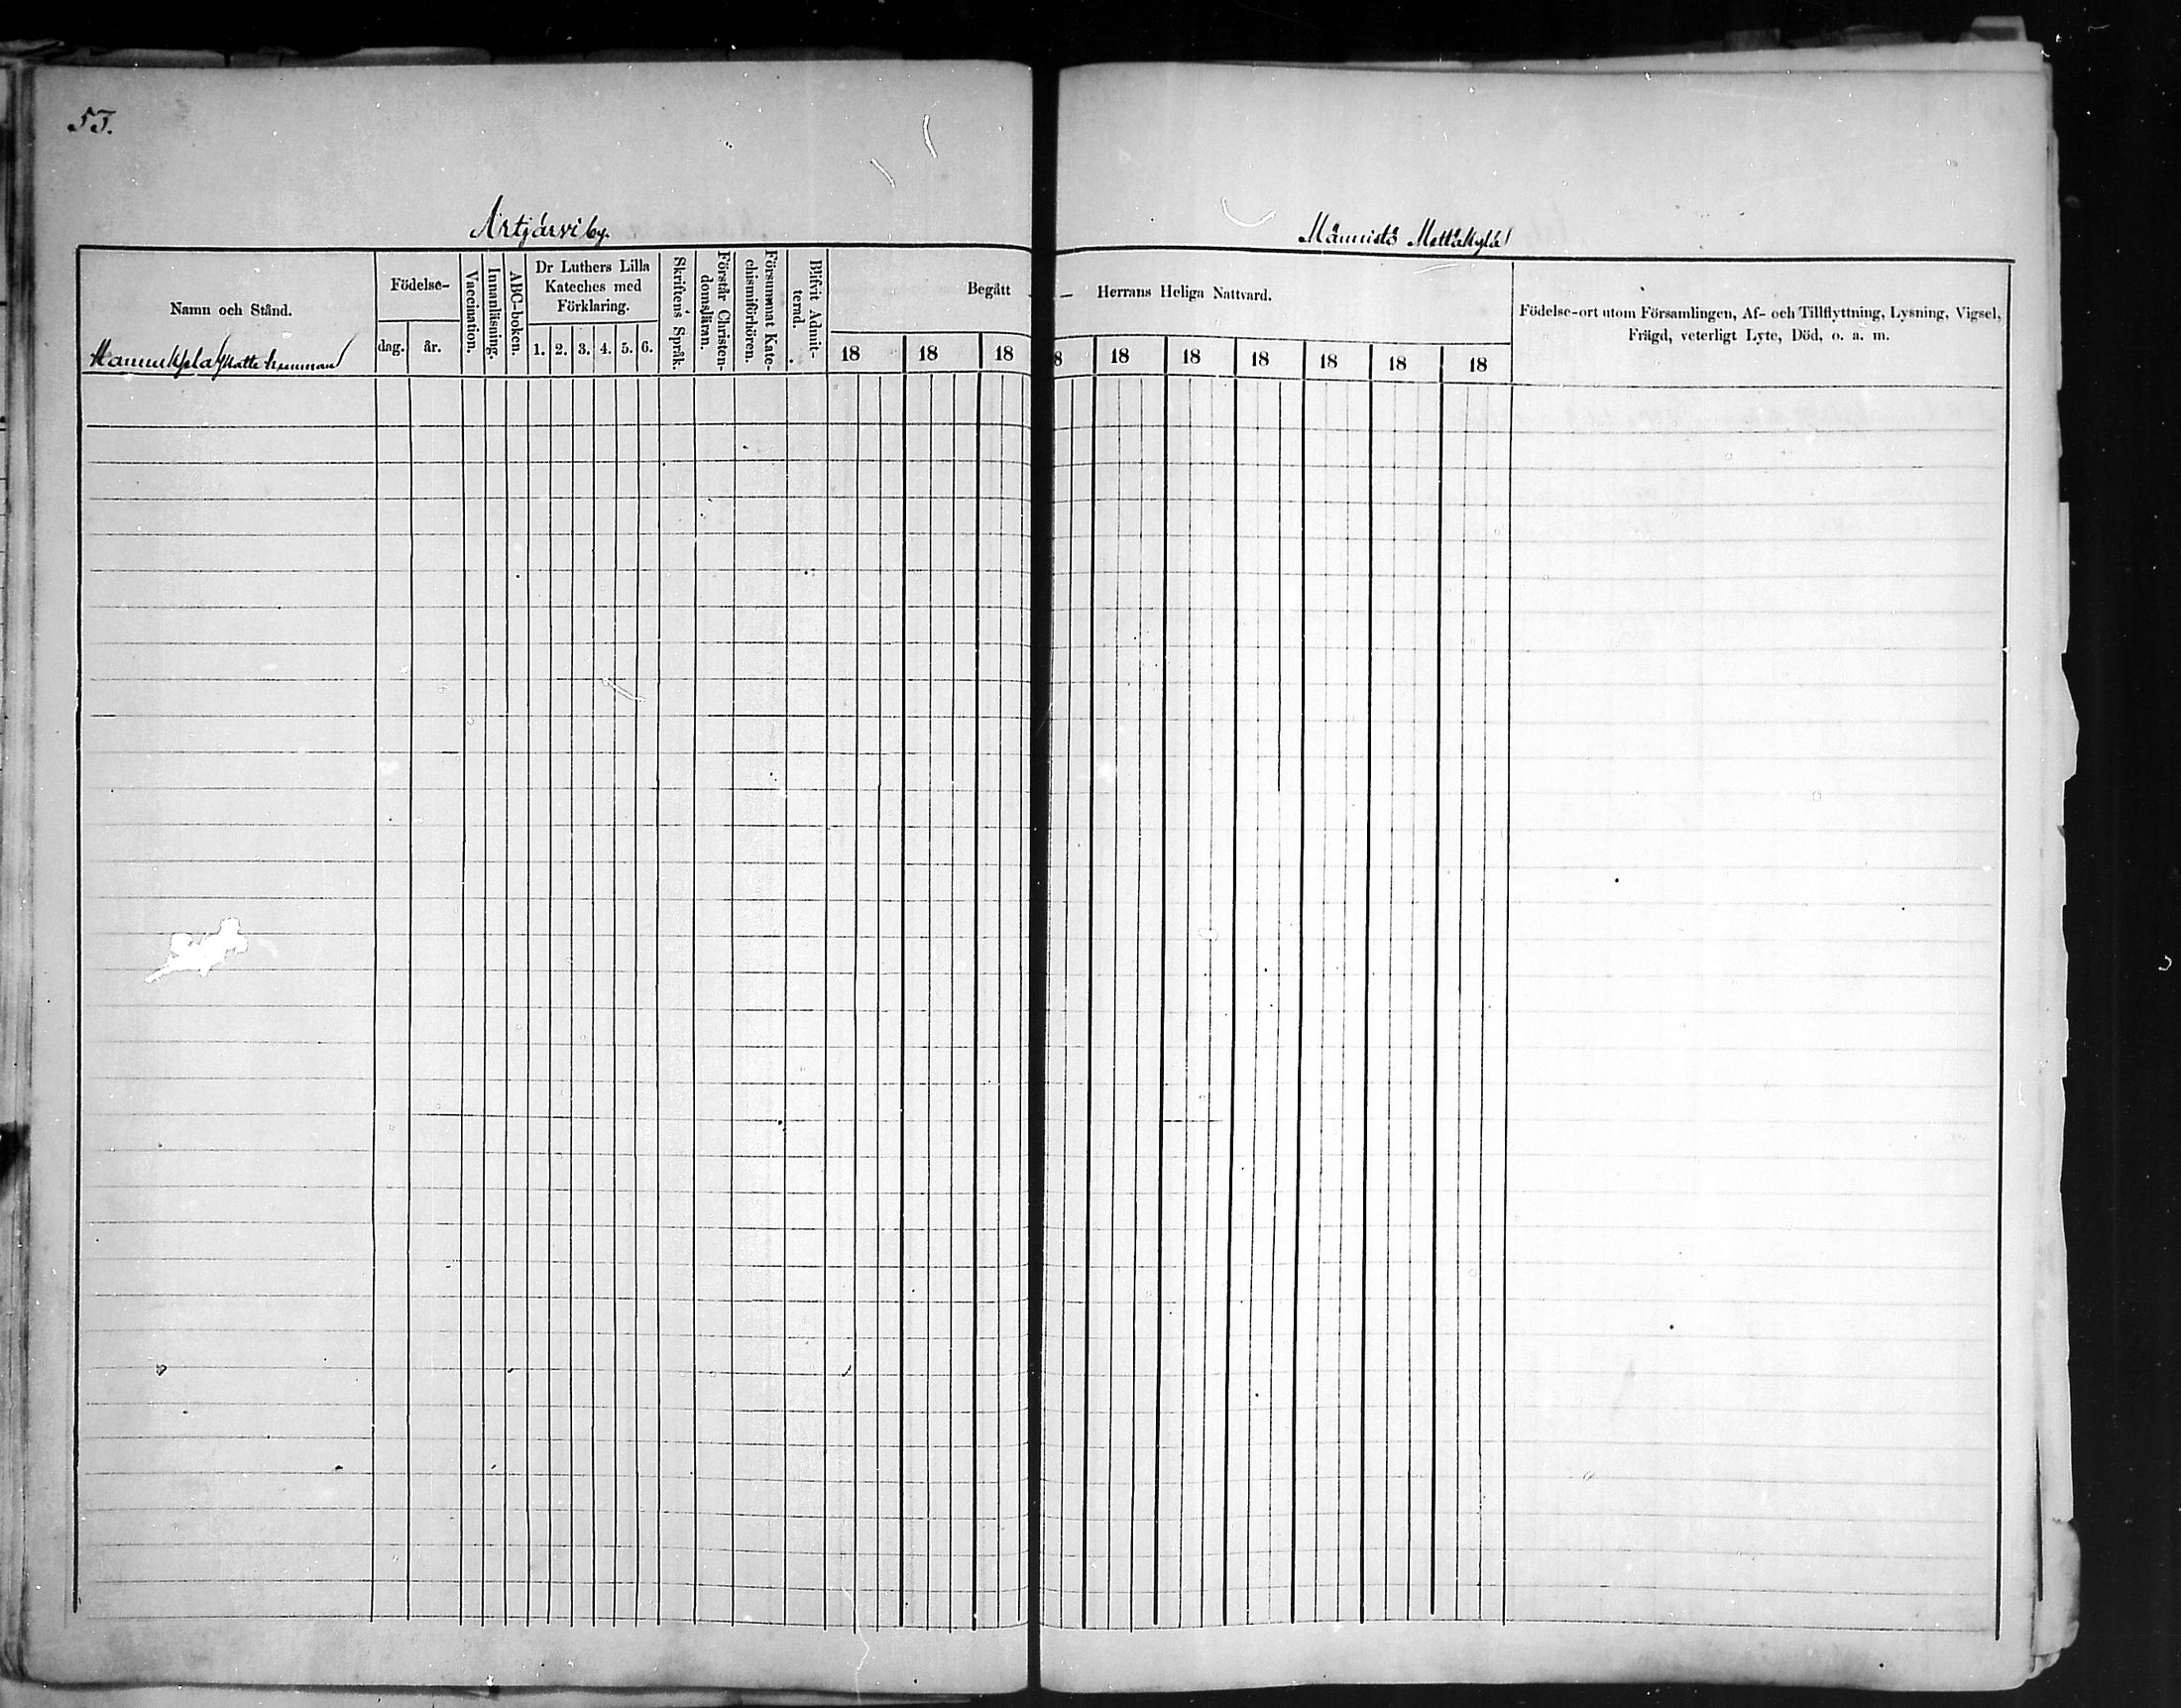 53.
Artjärvi by.
Männistö Mettäkylä
Namn och Stånd.
Födelse-
dag.
år.
Vaccination.
Innanläsning.
ABC-boken.
Dr Luthers Lilla
Kateches med
Förklaring.
1. 2. 3. 4. 5. 6.
Skriftens Språk.
Förstår Christen-
domsläran.
Försummat Kate-
chismiförhören.
Blifvit Admit-
terad.
Begått
Herrans Heliga Nattvard.
18 18 18 8 18 18 18 18 18 18
Födelse-ort utom Församlingen, Af- och Tillflyttning, Lysning, Vigsel,
Frägd, veterligt Lyte, Död, o. a. m.